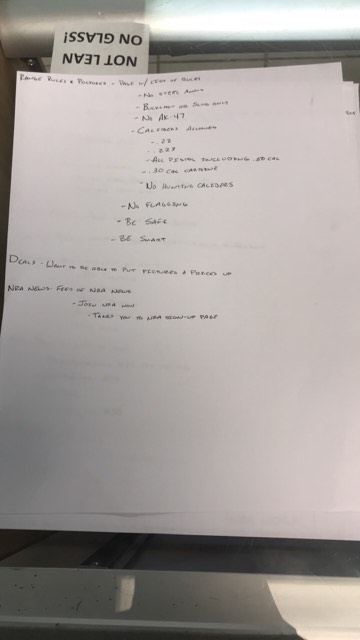 NOT LEAN
ON GLASS!
RANGE RULES & POLICIES - PAGE W/ LIST OF RULES
- NO STEEL AMMO
- BUCKSHOT OR SLUG ONLY
- NO AK-47
- CALIBERS ALLOWED
- .22
- .223
- ALL PISTOL INCLUDING .50 CAL
- .30 CAL CARBINE
- NO HUNTING CALIBERS
- NO FLAGGING
- BE SAFE
- BE SMART
DEALS - WANT TO BE ABLE TO PUT PICTURES & PRICES UP
NRA NEWS - FEED OF NRA NEWS
- JOIN NRA NOW
- TAKES YOU TO NRA SIGN-UP PAGE